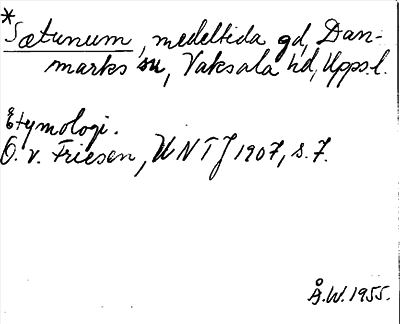 *Sætunum, medeltida gd, Dan-
marks sn, Vaksala hd, Upps.l.
Etymologi.
O. v. Friesen, UNTJ 1907, s. 7.
Å.W. 1955.